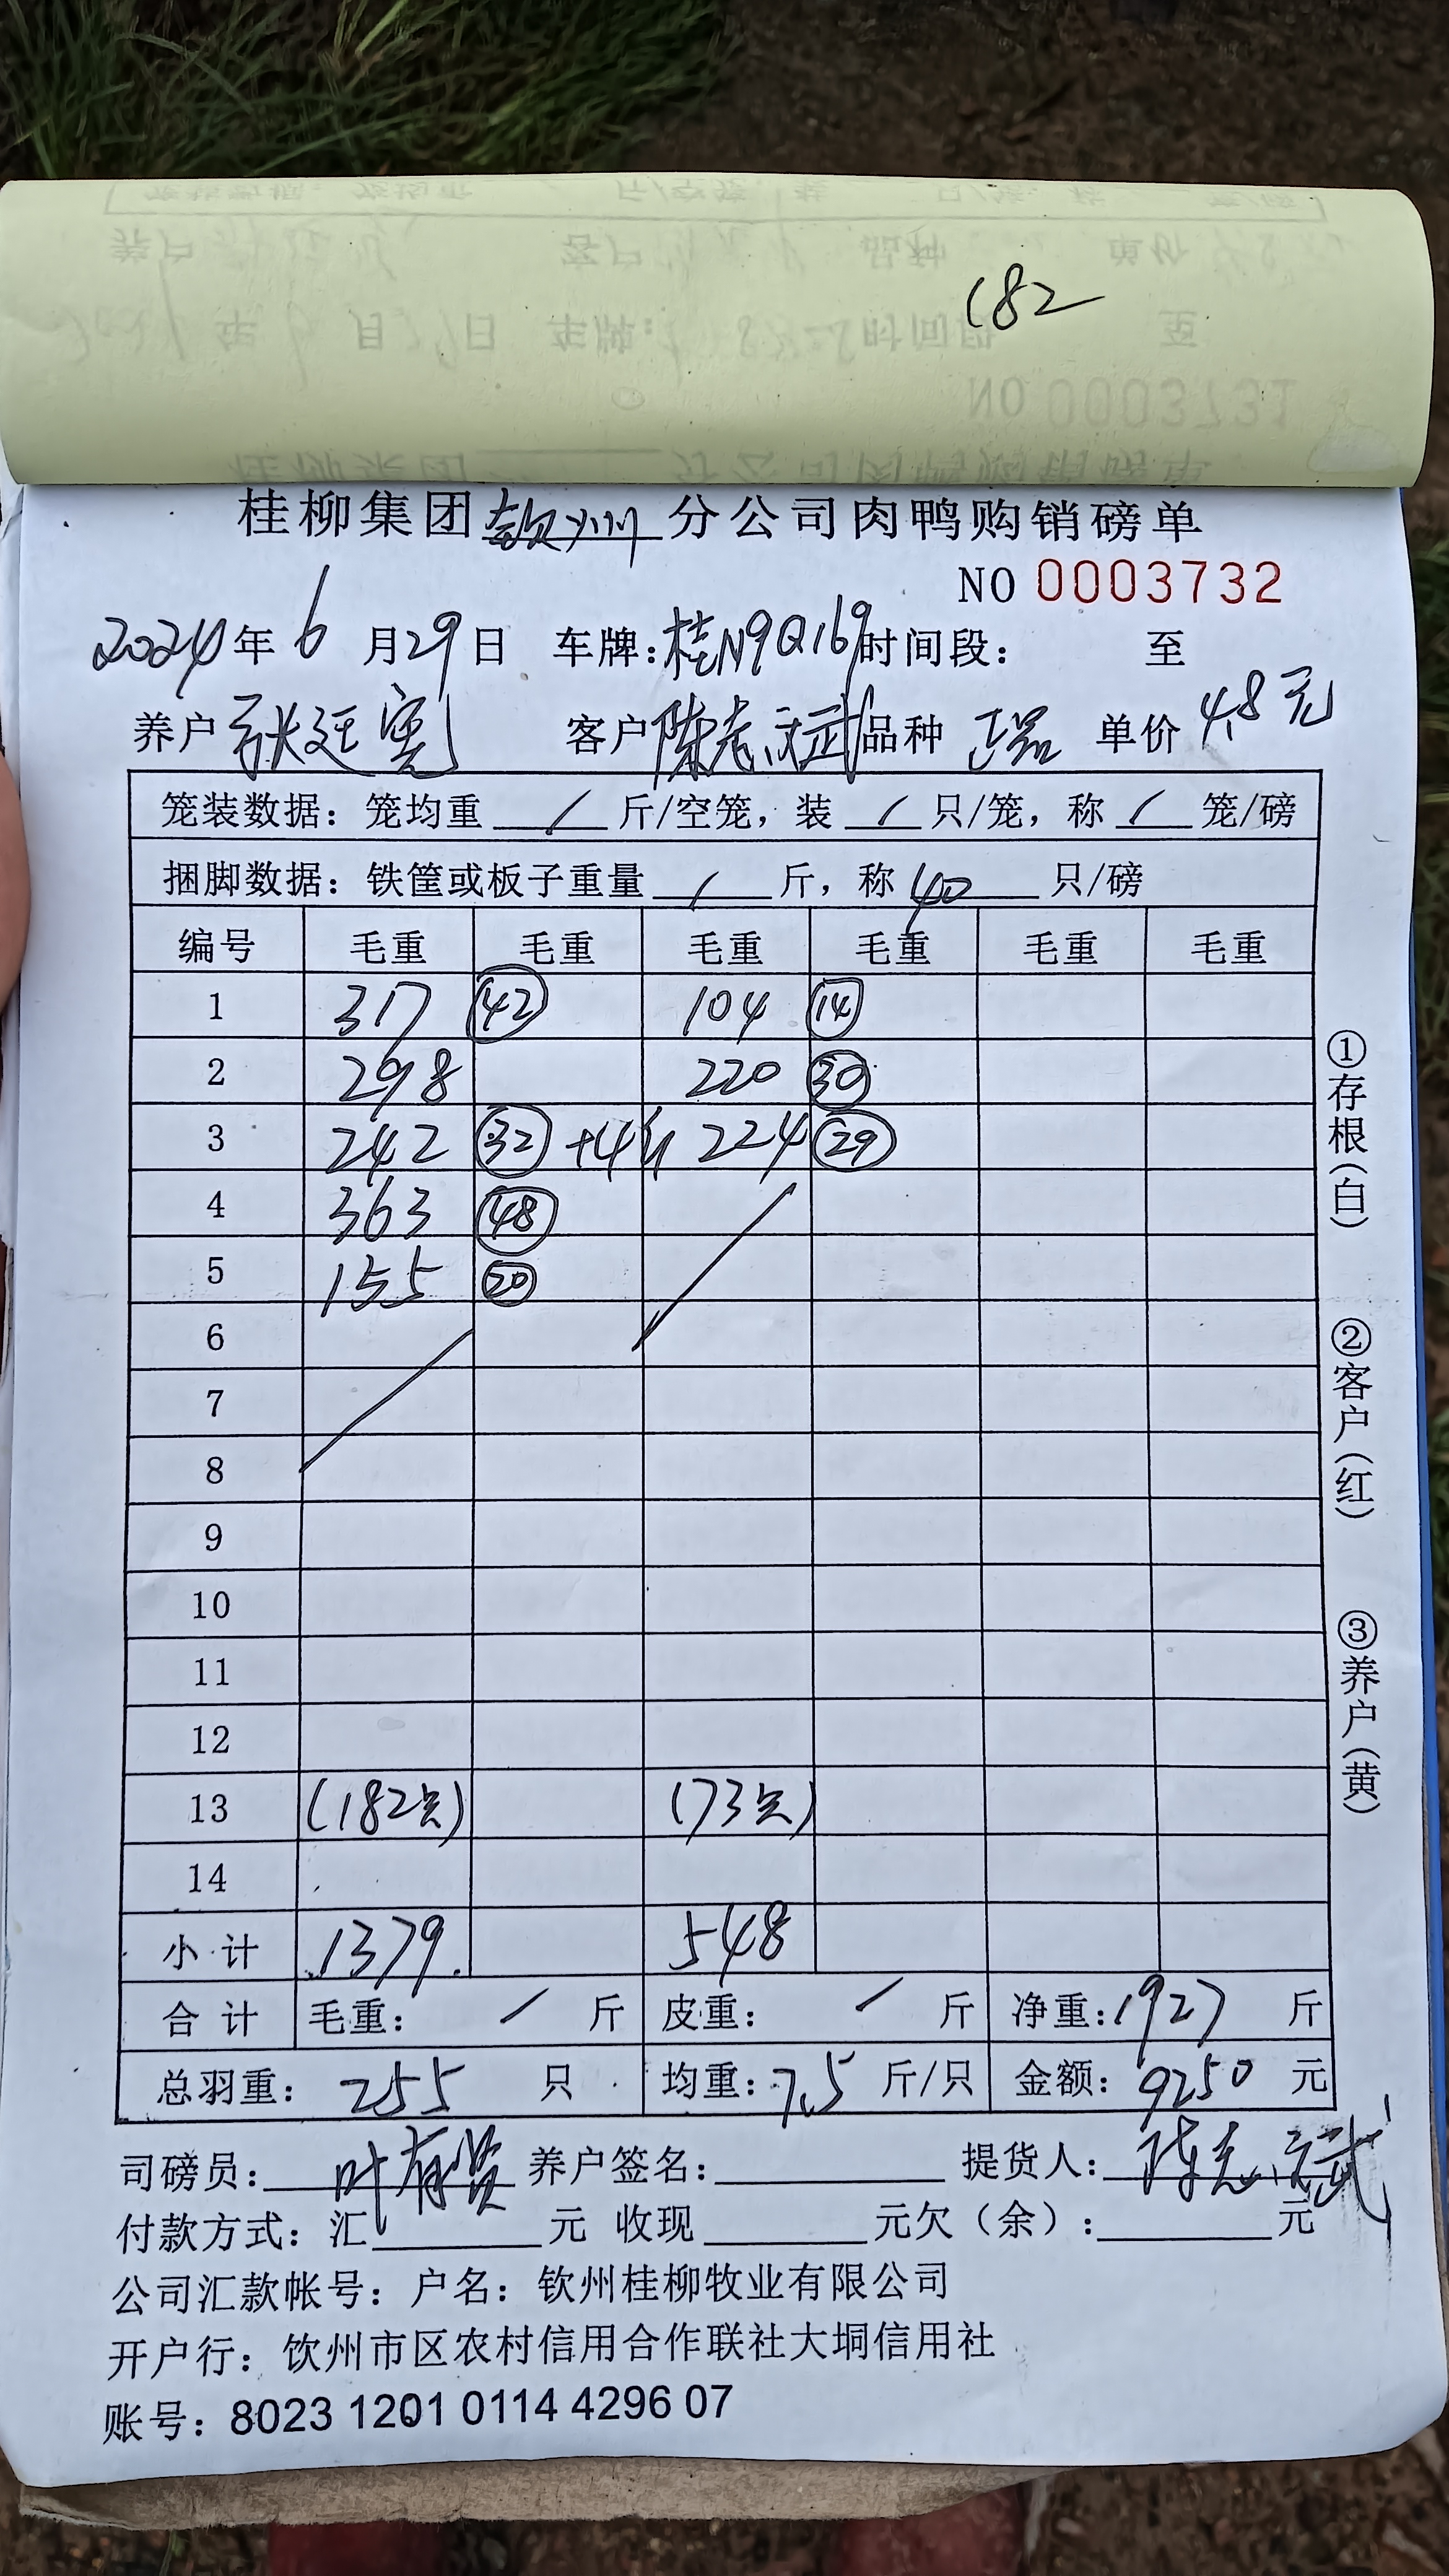 182
NO 0003731
桂柳集团钦州分公司肉鸭购销磅单
NO 0003732
2024年6月29日 车牌:桂N9Q169时间段: 至
养户 张廷宪 客户 陈志斌 品种 单价 4.8元
笼装数据: 笼均重 / 斤/空笼, 装 / 只/笼, 称 / 笼/磅
捆脚数据: 铁筐或板子重量 / 斤, 称 40 只/磅
编号 毛重 毛重 毛重 毛重 毛重 毛重
1 317 42 104 14
2 298 220 30
3 242 32 +4 224 29
4 363 48
5 155 20
6
7
8
9
10
11
12
13 (182只) (73只)
14
小计 1379 548
合计 毛重: / 斤 皮重: / 斤 净重: 1927 斤
总羽重: 255 只 均重: 7.5 斤/只 金额: 9250 元
司磅员: 叶有贤 养户签名: 提货人: 陈志斌
付款方式: 汇 元 收现 元欠(余): 元
公司汇款帐号: 户名: 钦州桂柳牧业有限公司
开户行: 饮州市区农村信用合作联社大垌信用社
账号: 8023 1201 0114 4296 07
①存根(白)
②客户(红)
③养户(黄)